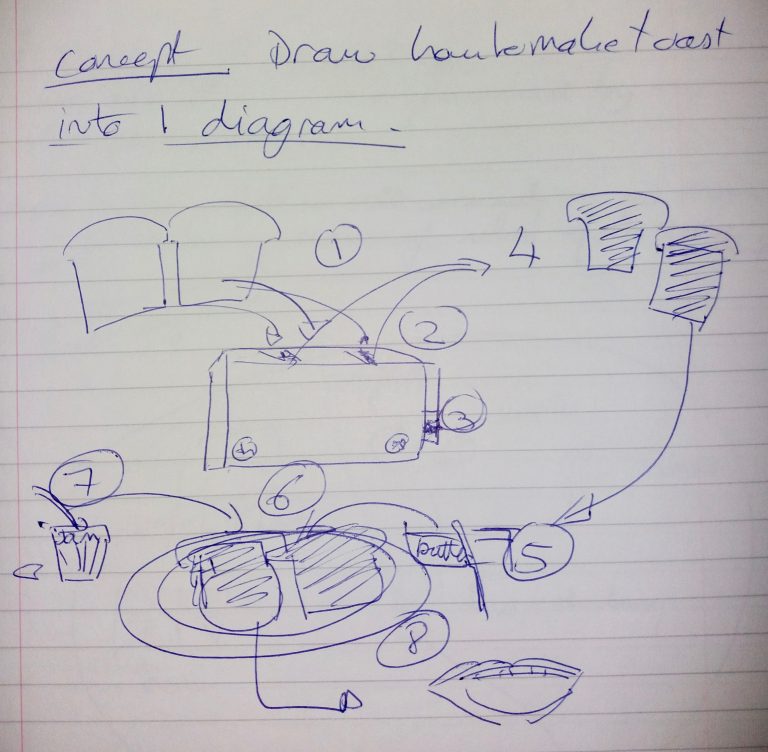 Concept. Draw how to make toast
into 1 diagram.
1
2
4
3
7
6
Jam
butter
5
8